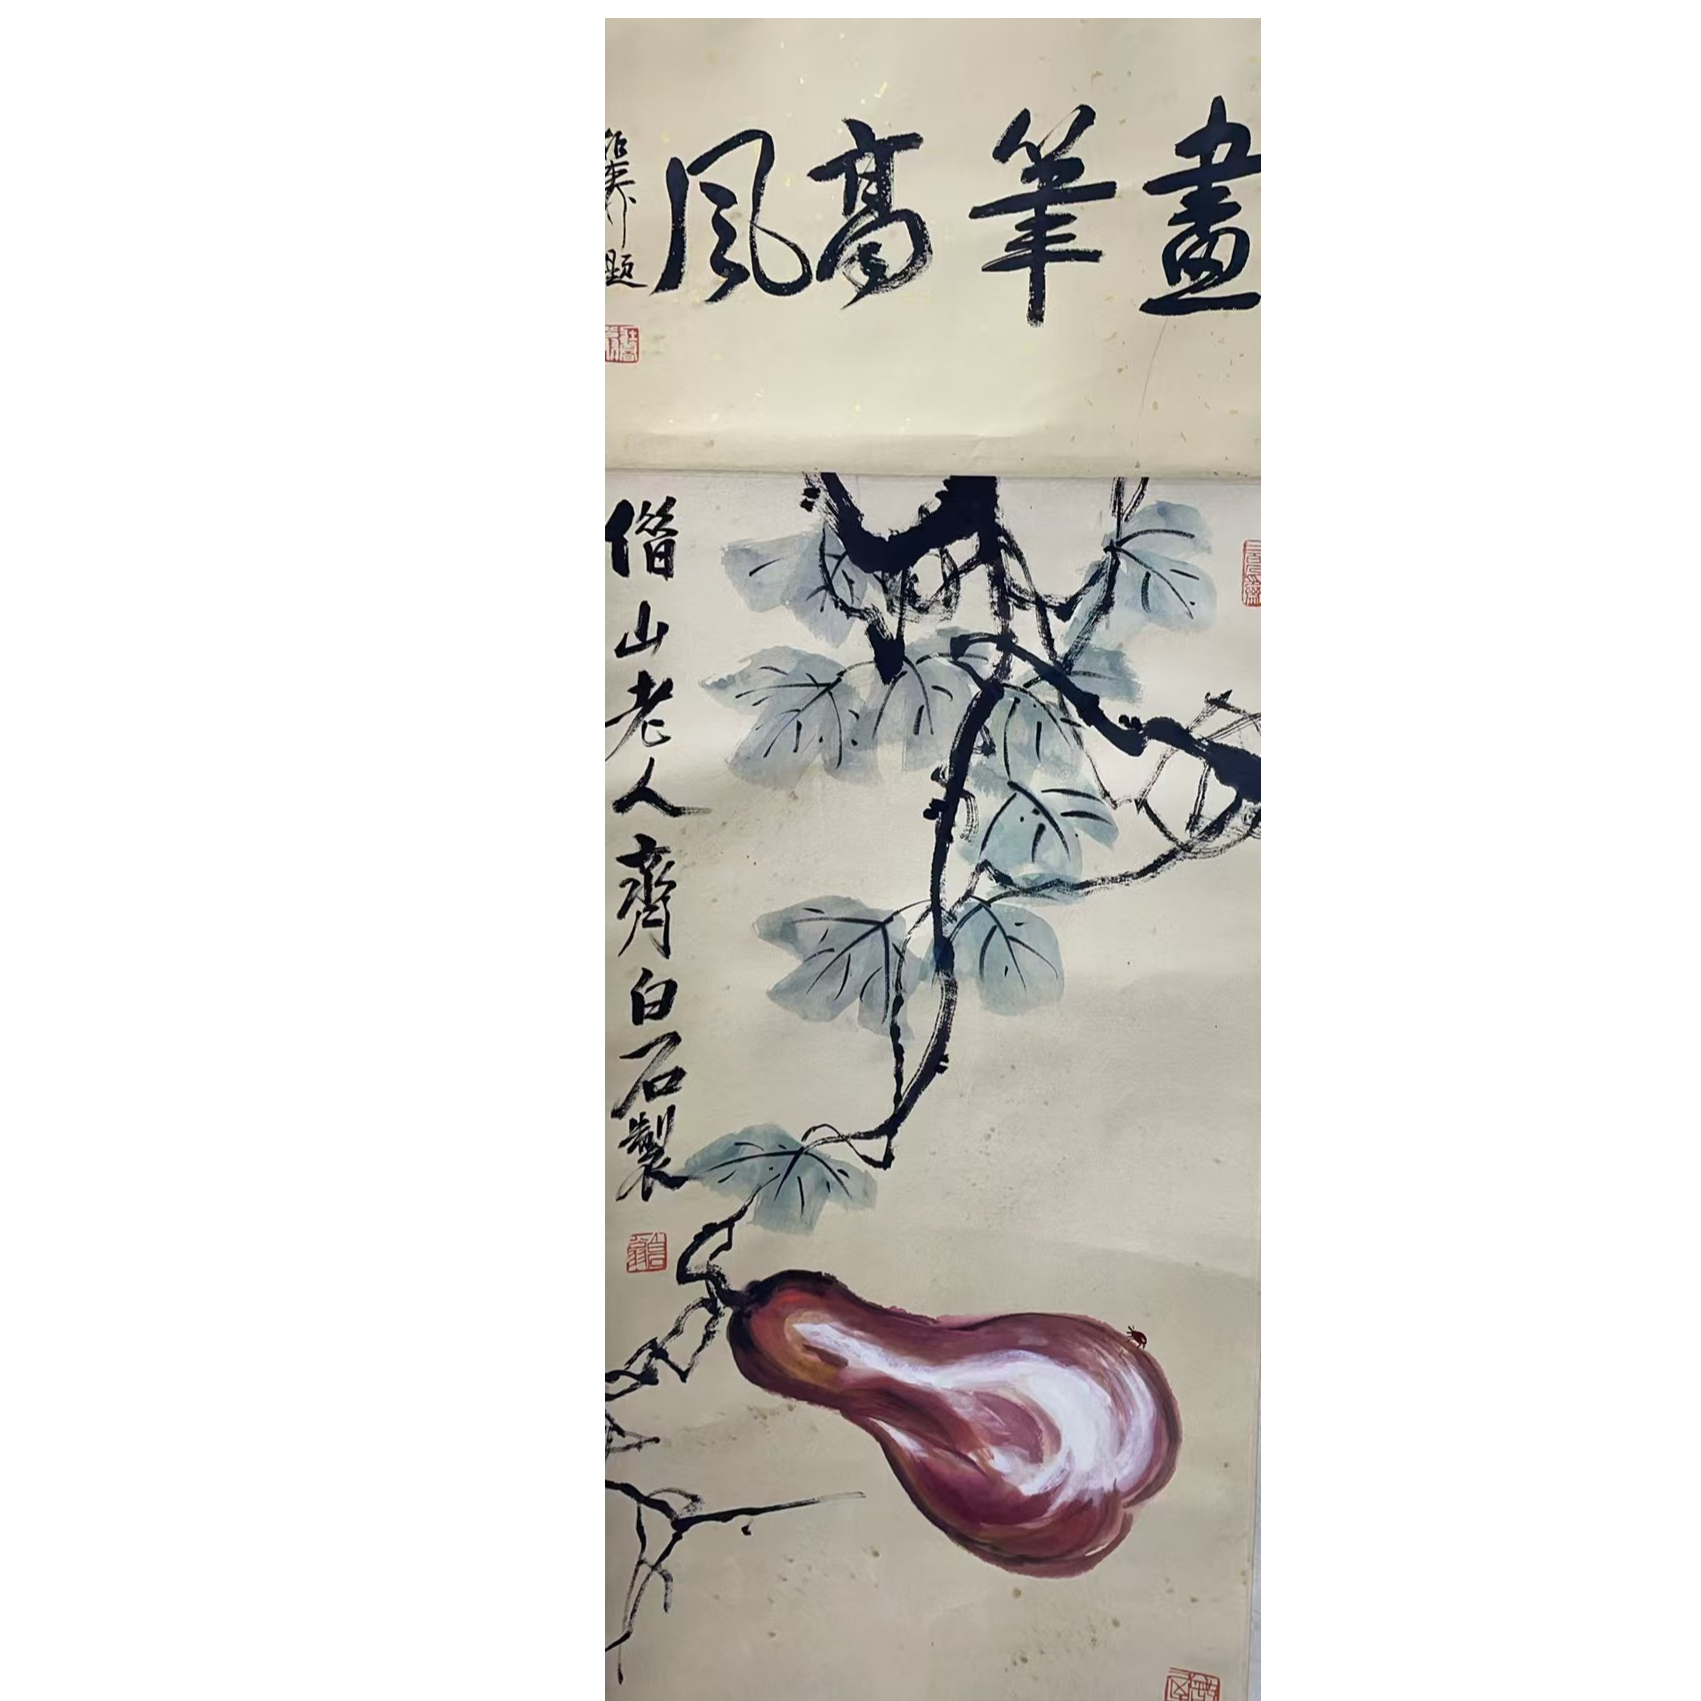 畫筆高風
題
借山老人齊白石製